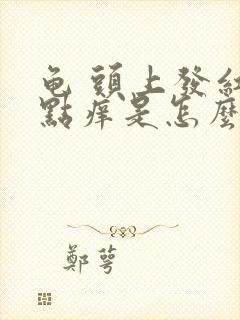 龜頭上發紅
點癢是怎麼
鄭萼